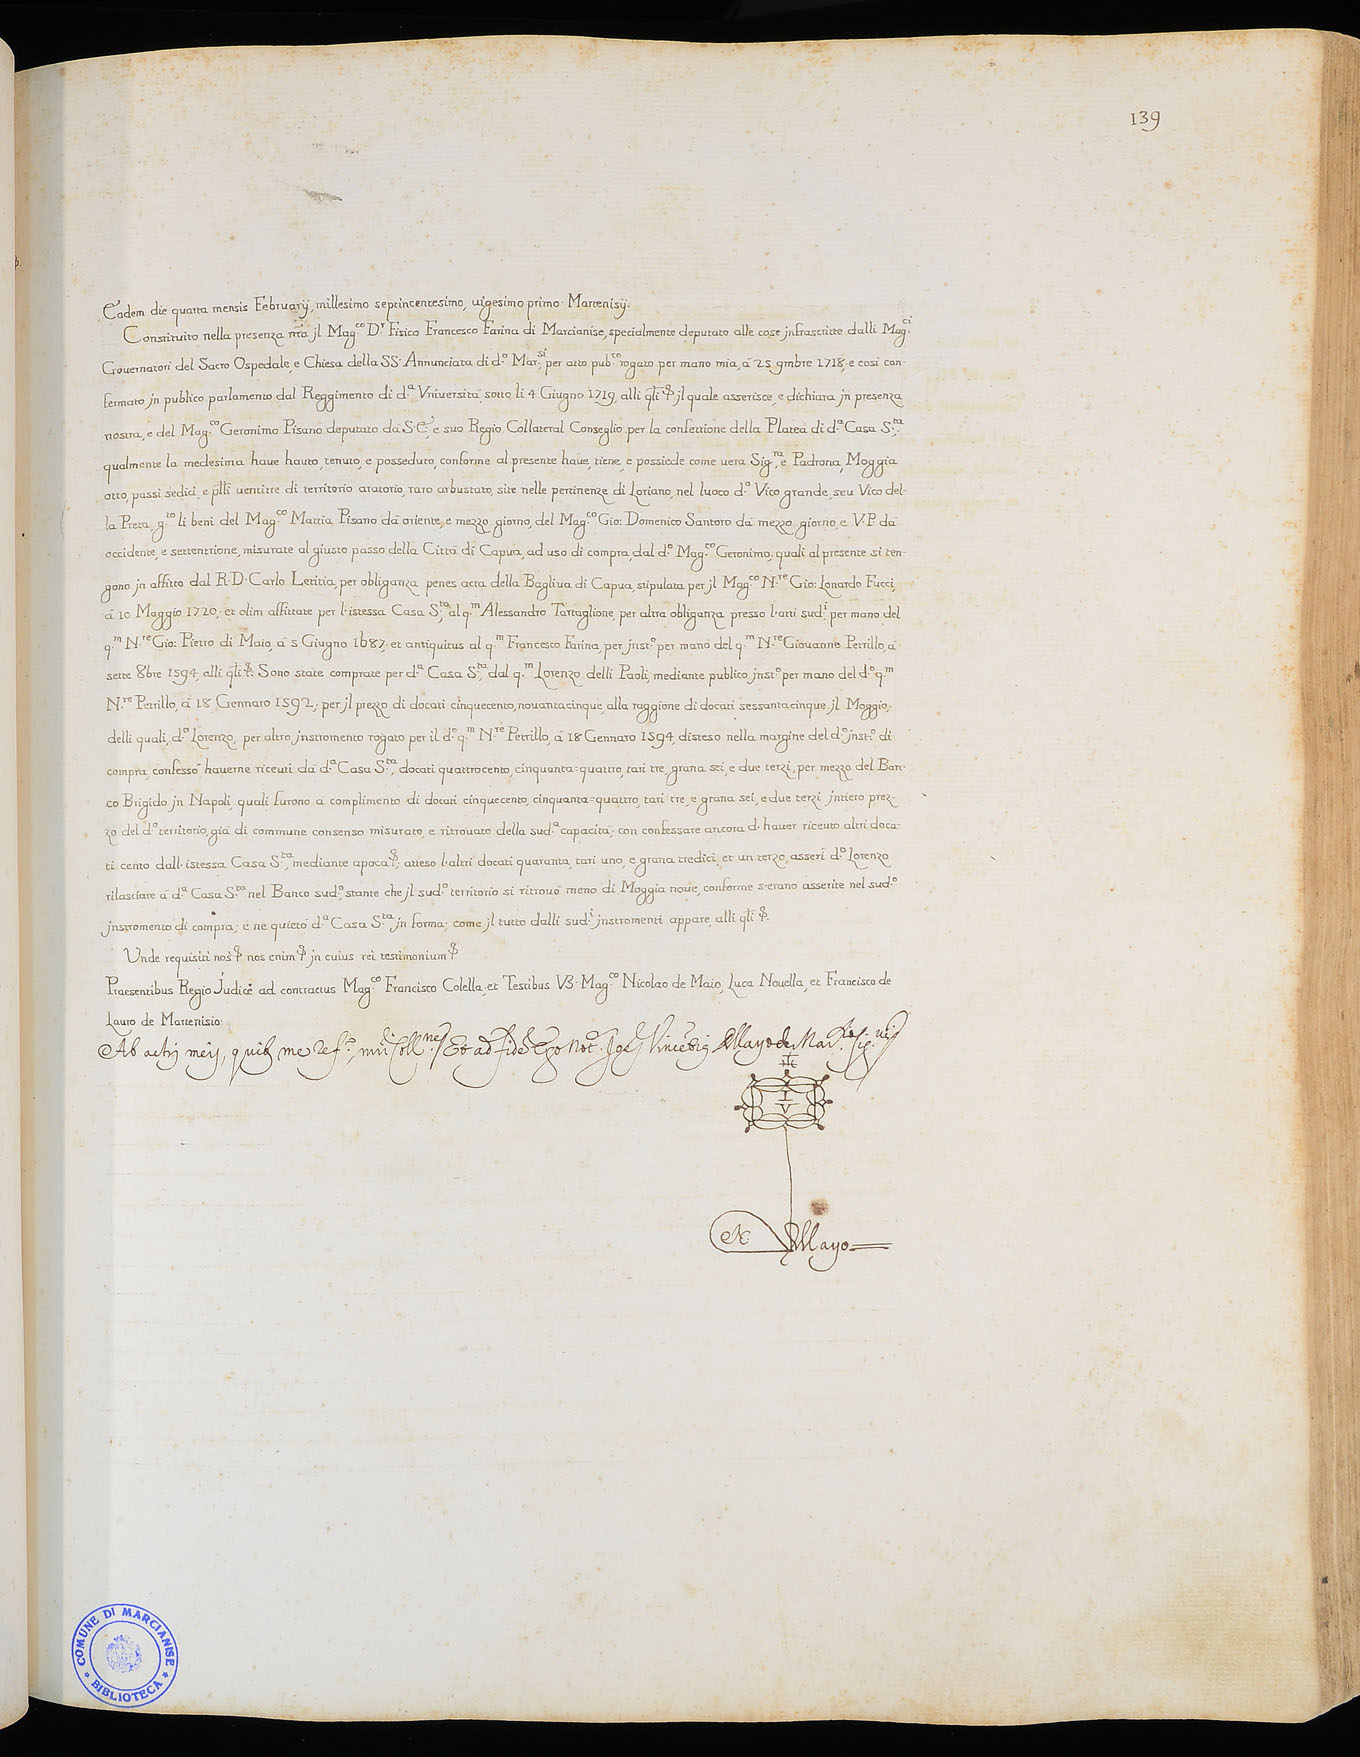 139
Eadem die quarta mensis Februarij, millesimo septincentesimo, uigesimo primo. Martenisij.
Constituito nella presenza nr̄a jl Mag.co D.r Fisico Francesco Farina di Marcianise, specialmente deputato alle cose jnfrascritte dalli Mag.ci
Gouernatori del Sacro Ospedale, e Chiesa della SS. Annunciata di d.o Mar.si, per atto pub.co rogato per mano mia, à 25 9mbre 1718, e così con-
fermato jn publico parlamento dal Reggimento di d.a Vniuersità, sotto li 4 Giugno 1719, alli qli jl quale asserisce, e dichiara jn presenza
nostra, e del Mag.co Geronimo Pisano deputato dà S.E., e suo Regio Collateral Conseglio per la confettione della Platea di d.a Casa S.ta,
qualmente la medesima haue hauto, tenuto, e posseduto, conforme al presente haue, tiene, e possiede come uera Sig.ra, e Padrona, Moggia
otto, passi sedici, e p̄lli uentitre di territorio aratorio, raro arbustato, site nelle pertinenze di Loriano, nel luoco d.o Vico grande, seu Vico del-
la Preta, g.to li beni del Mag.co Mattia Pisano dà oriente, e mezzo giorno, del Mag.co Gio: Domenico Santoro dà mezzo giorno, e V.P. dà
occidente, e settentrione, misurate al giusto passo della Città di Capua, ad uso di compra, dal d.o Mag.co Geronimo; quali al presente si ten-
gono jn affitto dal R.D. Carlo Letitia, per obliganza penes acta della Bagliua di Capua, stipulata per jl Mag.co N.re Gio: Lonardo Fucci,
à 10 Maggio 1720; et olim affittate per l'istessa Casa S.ta, al q.m Alessandro Tartaglione, per altra obliganza presso l'atti sud.i per mano del
q.m N.re Gio: Pietro di Maio, à 5 Giugno 1687; et antiquitus al q.m Francesco Farina, per jnst.o per mano del q.m N.re Giouanne Petrillo, à
sette 8bre 1594, alli qli. Sono state comprate per d.a Casa S.ta, dal q.m Lorenzo delli Paoli, mediante publico jnst.o per mano del d.o q.m
N.re Petrillo, à 18 Gennaro 1592; per jl prezzo di docati cinquecento, nouantacinque, alla raggione di docati sessantacinque jl Moggio;
delli quali, d.o Lorenzo, per altro jnstromento rogato per il d.o q.m N.re Petrillo, à 18 Gennaro 1594, disteso nella margine del d.o jnst.o di
compra, confessò hauerne riceuti dà d.a Casa S.ta, docati quattrocento, cinquanta=quattro, tarì tre, grana sei, e due terzi, per mezzo del Ban-
co Brigido jn Napoli, quali furono à complimento di docati cinquecento, cinquanta=quattro, tarì tre, e grana sei, e due terzi jntiero prez-
zo del d.o territorio, già di commune consenso misurato, e ritrouato della sud.a capacità; con confessare ancora d'hauer riceuto altri doca-
ti cento dall'istessa Casa S.ta, mediante apoca; atteso l'altri docati quaranta, tarì uno, e grana tredici, et un terzo, asserì d.o Lorenzo
rilasciare à d.a Casa S.ta nel Banco sud.o, stante che jl sud.o territorio si ritrouò meno di Moggia noue, conforme s'erano asserite nel sud.o
jnstromento di compra; e ne quietò d.a Casa S.ta jn forma; come jl tutto dalli sud.i jnstromenti appare, alli qli.
Unde requisiti nos nos enim jn cuius rei testimonium
Praesentibus Regio Judice ad contractus Mag.co Francisco Colella, et Testibus V3. Mag.co Nicolao de Maio, Luca Nouella, et Francisco de
Lauro de Martenisio.
Ab actis meis, quib. me ref.o, Et ad fidem Ego Not. Vincentius Mayo de
I V
Mayo
COMUNE DI MARCIANISE
BIBLIOTECA